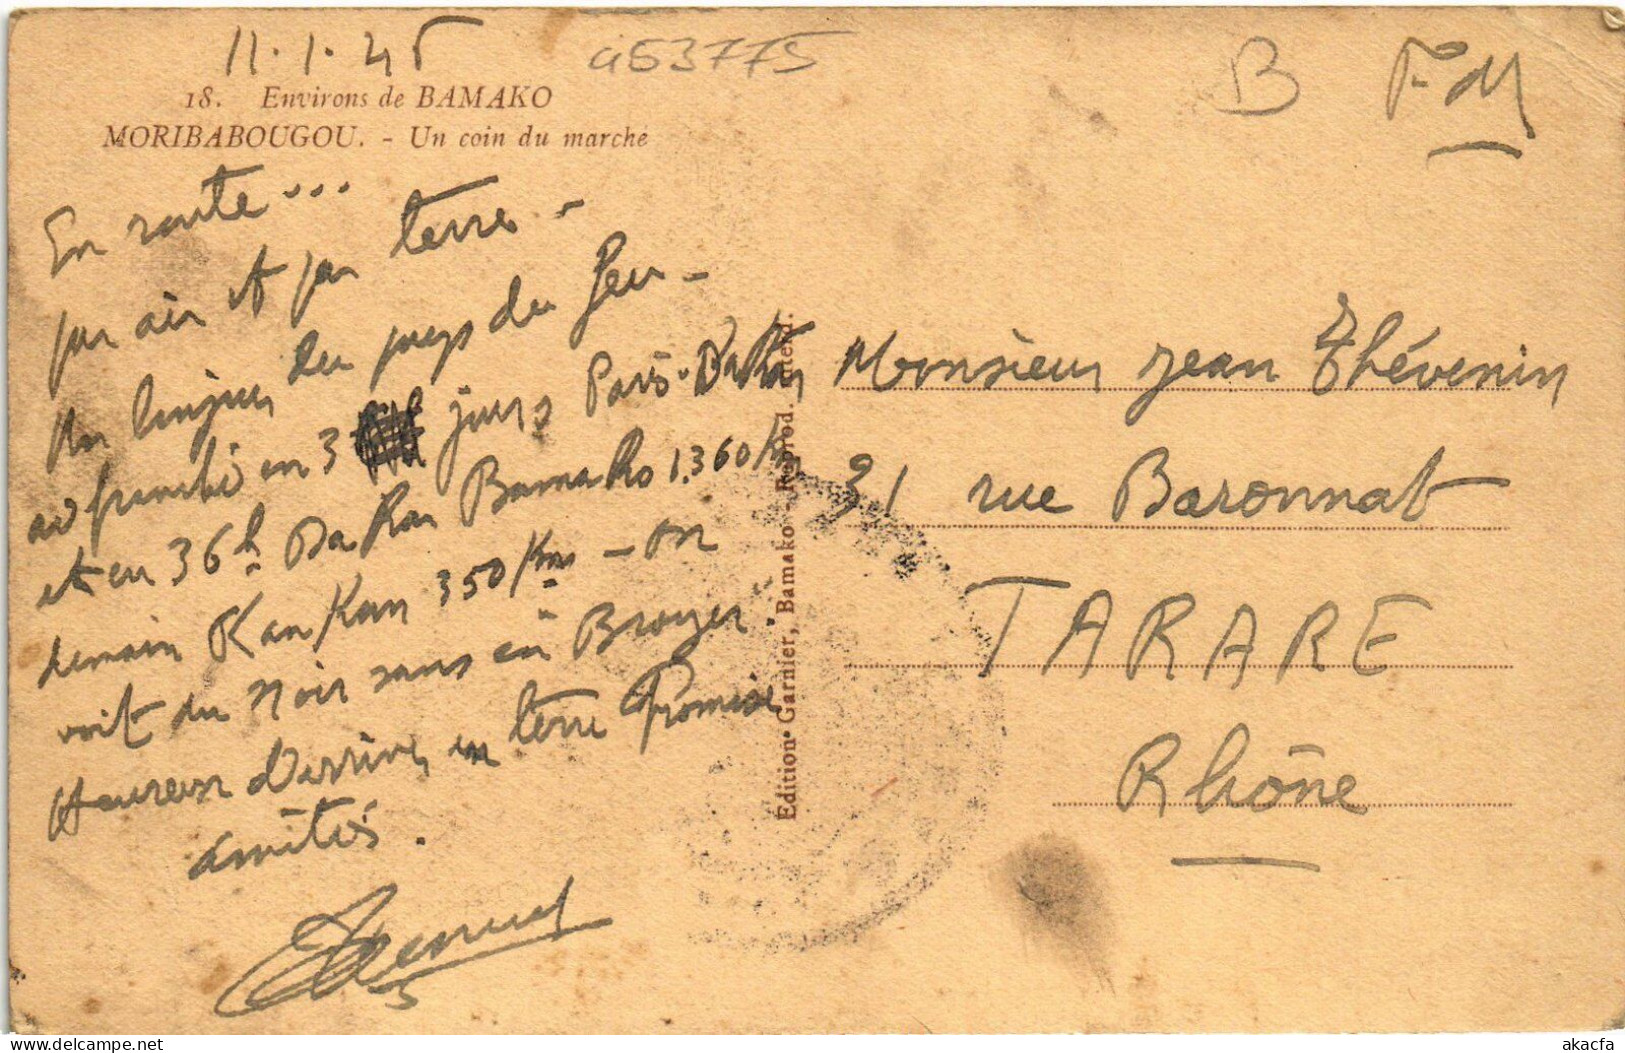 11.1.45
a53775
B
FM
18. Environs de BAMAKO
MORIBABOUGOU. - Un coin du marché
En route...
par air et par terre -
Un bonjour du pays du feu -
en 3 jours Paris-Dakar
et en 36h Dakar Bamako 1.360 Km
demain Kankan 350 Kms - on
voit du noir sans en Broyer
Heureux d'arriver en terre Promise
amitiés.
Monsieur Jean Thévenin
31 rue Baronnat
TARARE
Rhône
Edition Garnier, Bamako - Reprod. interd.
akacfa